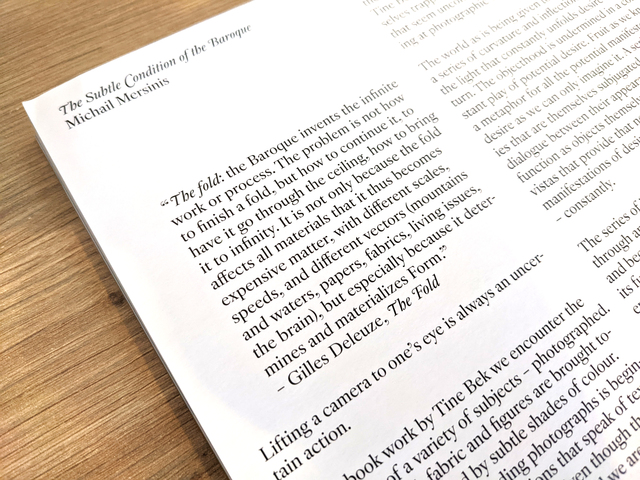 The Subtle Condition of the Baroque
Michail Mersinis
“The fold: the Baroque invents the infinite
work or process. The problem is not how
to finish a fold, but how to continue it, to
have it go through the ceiling, how to bring
it to infinity. It is not only because the fold
affects all materials that it thus becomes
expensive matter, with different scales,
speeds, and different vectors (mountains
and waters, papers, fabrics, living issues,
the brain), but especially because it deter-
mines and materializes Form.”
– Gilles Deleuze, The Fold
Lifting a camera to one’s eye is always an uncer-
tain action.
book work by Tine Bek we encounter the
of a variety of subjects – photographed.
fabric and figures are brought to-
by subtle shades of colour.
photographs is begin-
that speak of
selves
that seem
ing at photographic
The world as is being given
a series of curvature and inflection
the light that constantly unfolds
turn. The objecthood is undermined in a
stant play of potential desire. Fruit as we
a metaphor for all the potential
desire as we can only imagine it. A
ies that are themselves subjugated
dialogue between their
function as objects
vistas that provide that
manifestations of
– constantly.
The series of
through
and
its